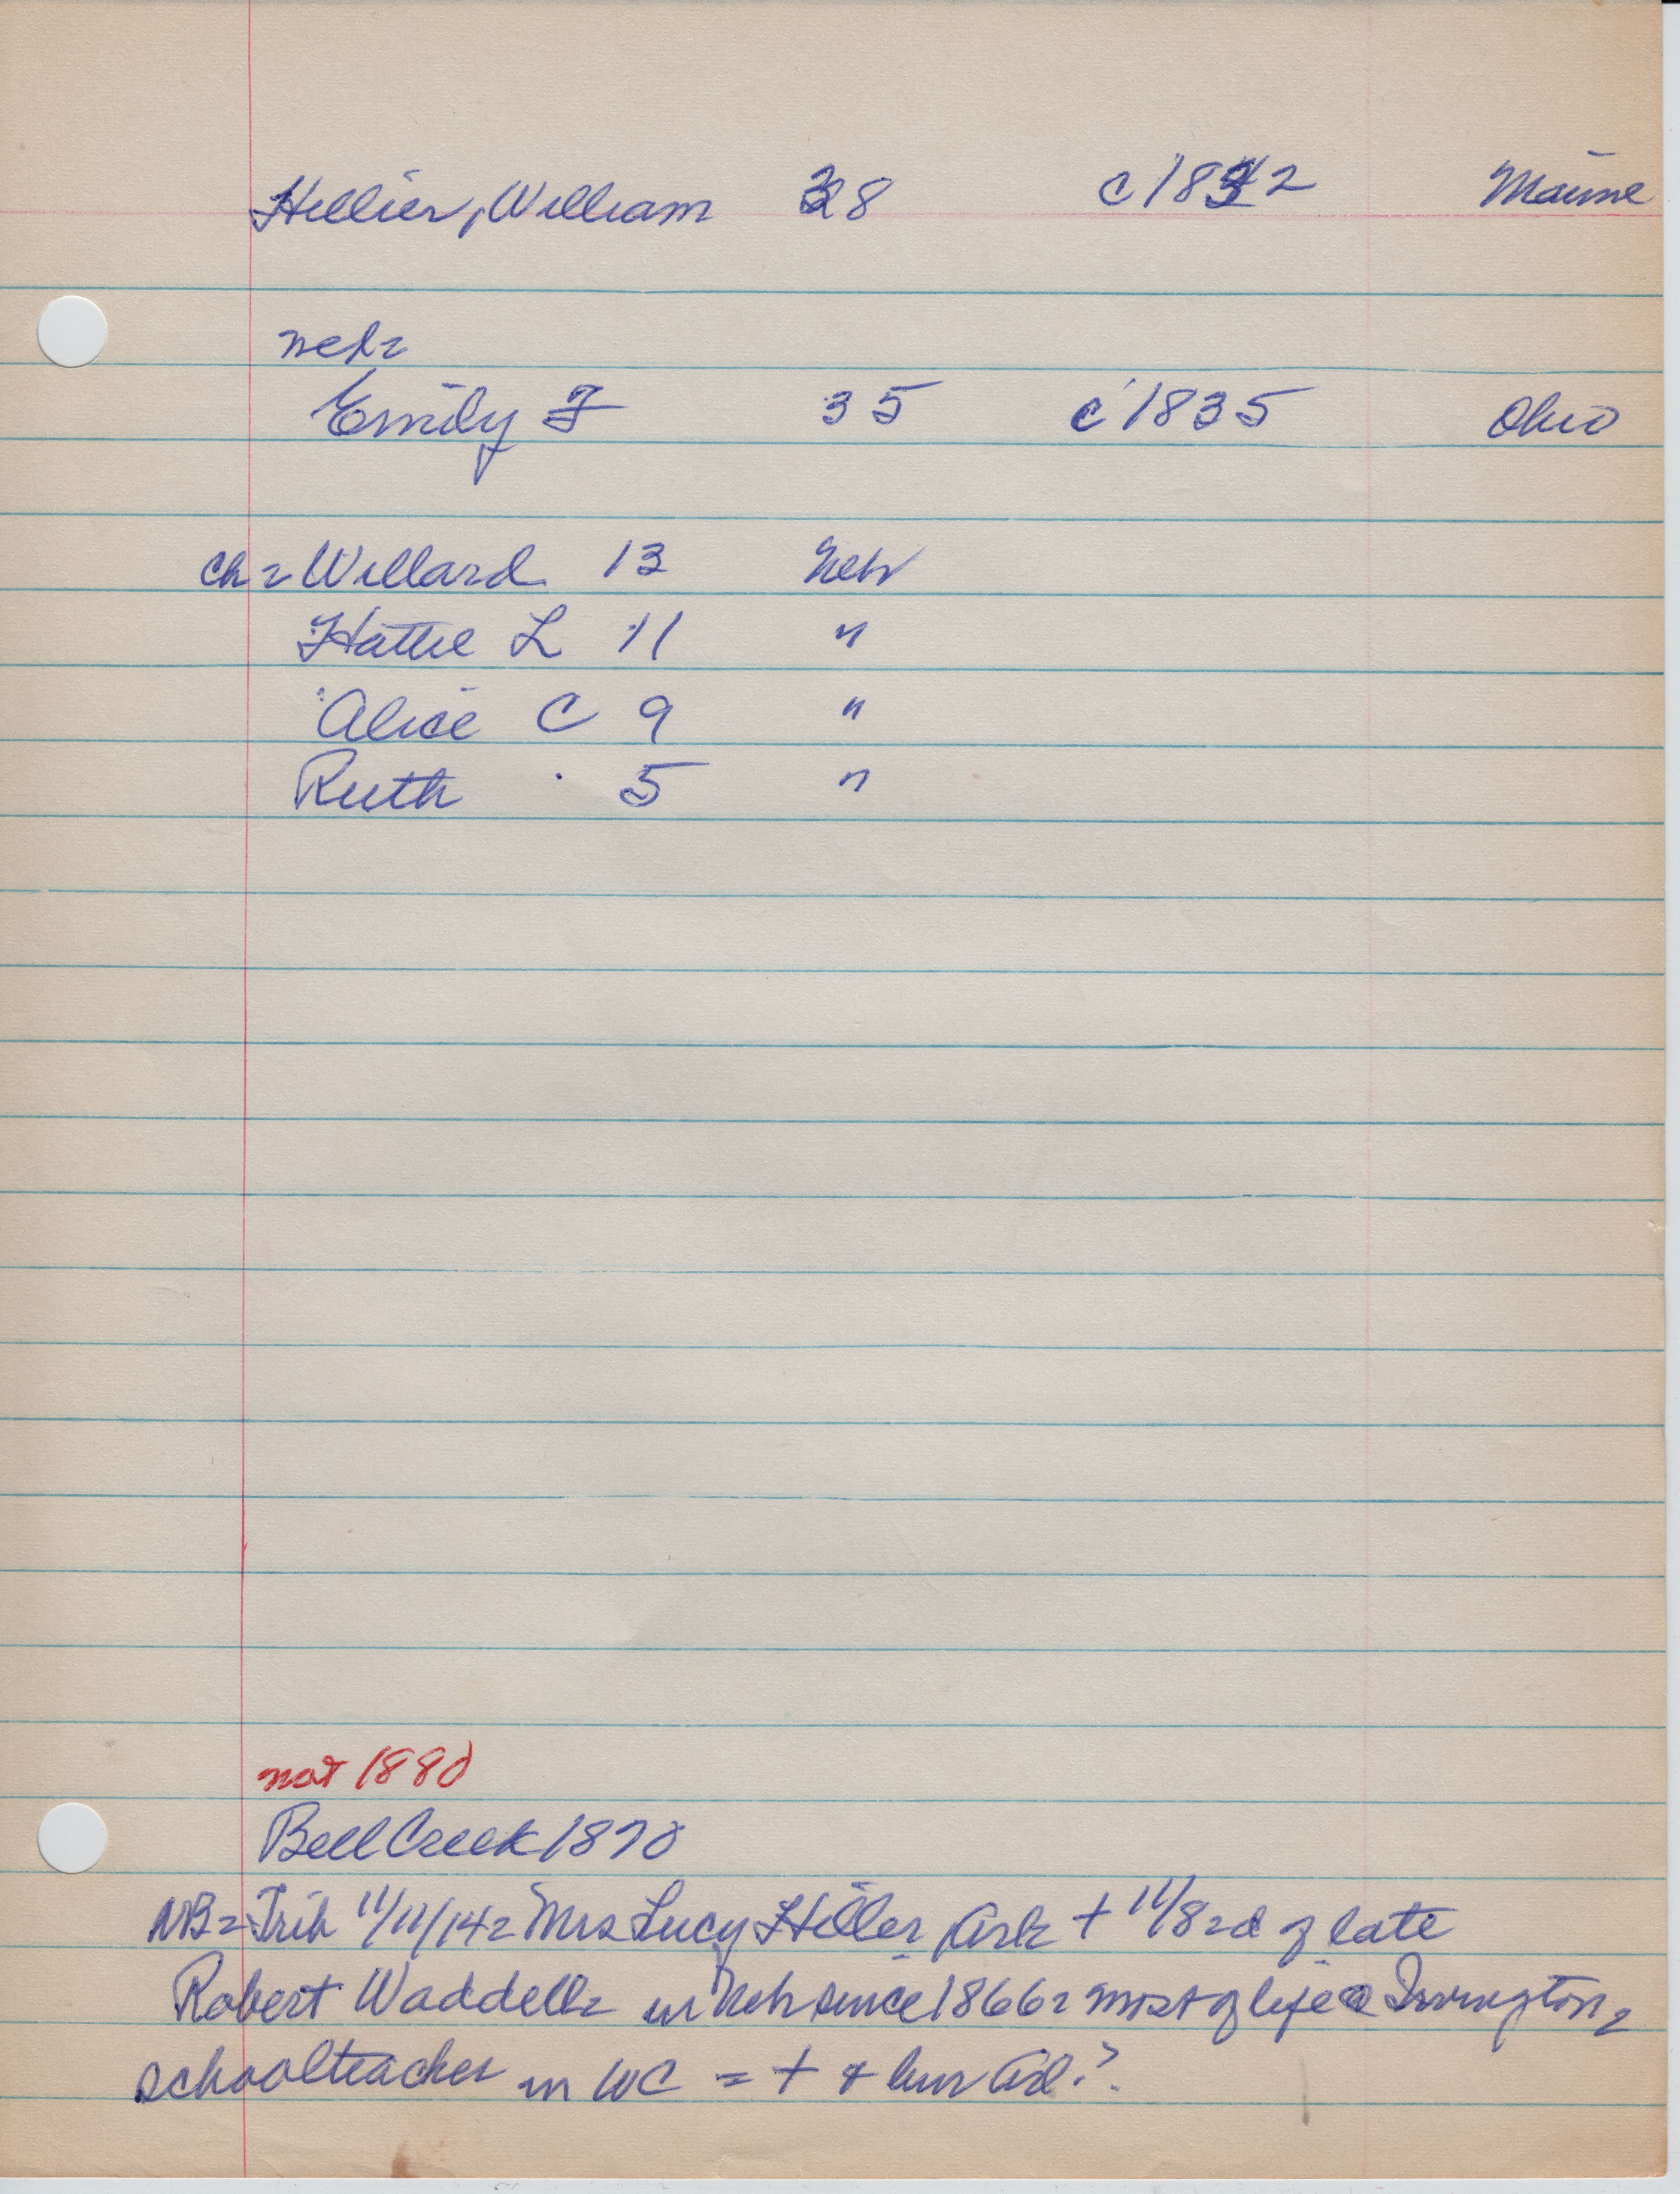 Hillier, William 28 c 1842 Maine
neb=
Emily F 35 c 1835 Ohio
ch = Willard 13 Neb
Hattie L 11 "
Alice C 9 "
Ruth 5 "
not 1880
Bell Creek 1870
NB= Trib 11/11/14= Mrs Lucy Hiller, Ark + 11/8= d of late
Robert Waddell= in Neb since 1866= most of life @ Irvington=
schoolteacher in WC = + & bur Ark?